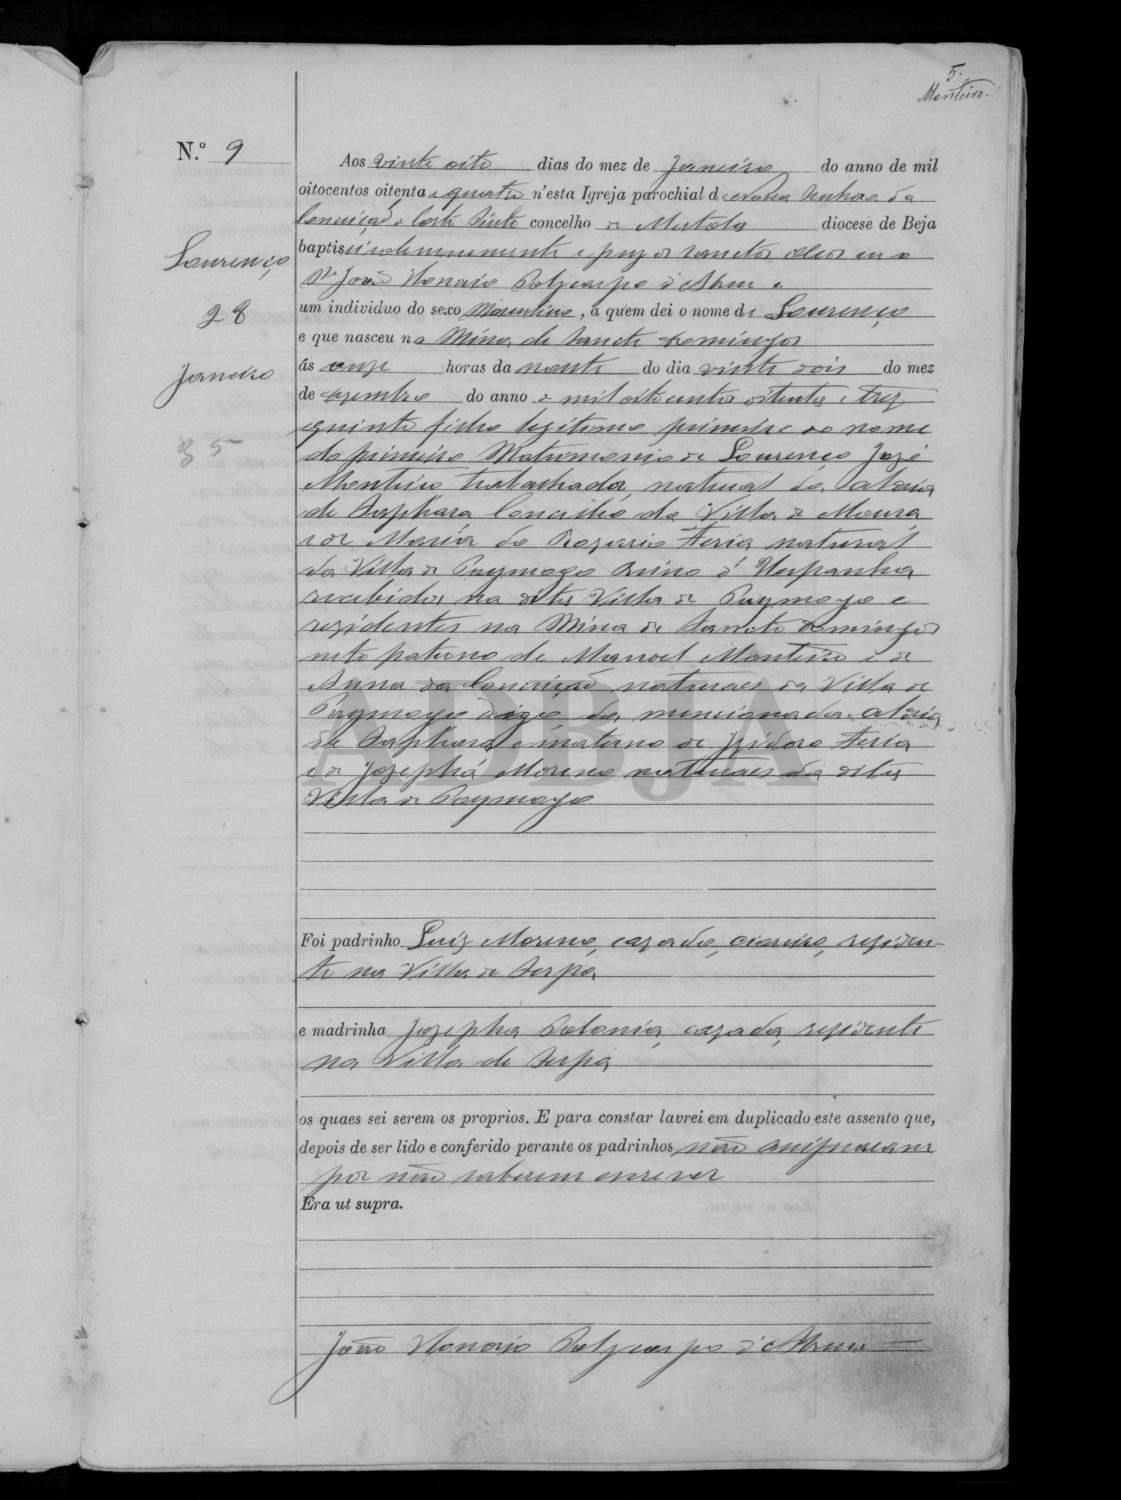 5.
Monteiro.
N.º 9
Lourenço
28
Janeiro
Aos vinte oito dias do mez de Janeiro do anno de mil
oitocentos oitenta e quatro n'esta Igreja parochial de Nossa Senhora da
Conceição de Corte Pinto concelho de Mertola diocese de Beja
baptisei solemnemente e puz os sanctos oleos eu o
Pe João Honorio Polycarpo d'Abreu a
um individuo do sexo Masculino, a quem dei o nome de Lourenço
e que nasceu na Mina de Sancto Domingos
ás onze horas da noute do dia vinte dois do mez
de Dezembro do anno de mil oito centos oitenta e trez
quinto filho legitimo primeiro do nome
do primeiro Matrimonio de Lourenço Jozé
Monteiro trabalhador natural da aldeia
de Saphara Concilio da Villa de Moura
e de Maria do Rozario Feria natural
da Villa de Paymogo Reino d'Hespanha
recebidos na dita Villa de Paymogo e
rezidentes na Mina de Sancto Domingos
neto paterno de Manoel Monteiro e de
Anna da Conceição naturaes da Villa de
Paymogo digo da mencionada aldeia
de Saphara e materno de Izidoro Feria
e de Jozepha Moreno naturaes da dita
Villa de Paymogo
ADBJA
Foi padrinho Luiz Moreno, cazado, residen-
te na Villa de Serpa
e madrinha Jozepha Polonia, cazada, rezidente
na Villa de Serpa
os quaes sei serem os proprios. E para constar lavrei em duplicado este assento que,
depois de ser lido e conferido perante os padrinhos não assignaram
por não saberem escrever
Era ut supra.
João Honorio Polycarpo d'Abreu